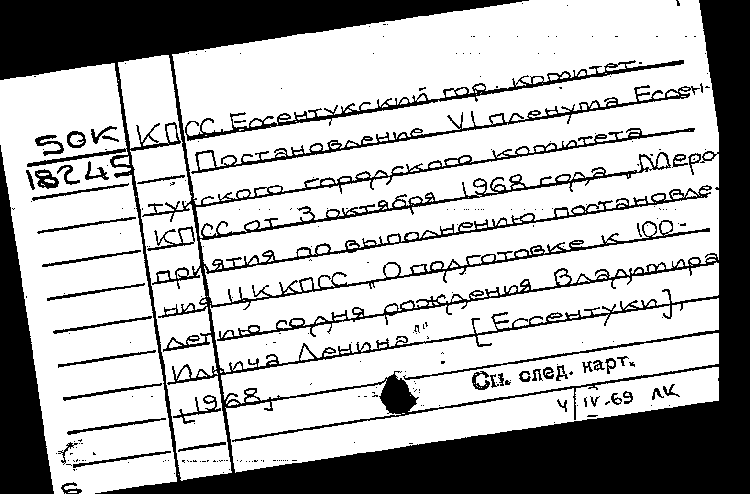 50К КПСС. Ессентукский гор. комитет.
18245 Постановление VI пленума Ессен-
тукского городского комитета
КПСС от 3 октября 1968 года „Меро-
приятия по выполнению постановле-
ния ЦК КПСС „О подготовке к 100-
летию со дня рождения Владимира
Ильича Ленина"". [Ессентуки],
[1968].
См. след. карт.
4/IV-69 ЛК